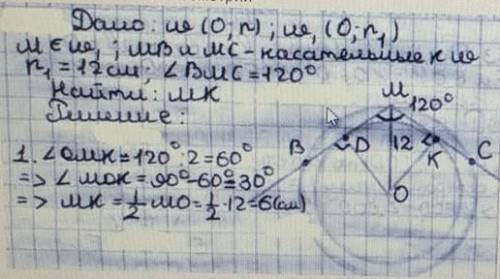 Дано: ω (O; r); ω₁ (O; r₁)
M ∈ ω₁; MB и MC - касательные к ω
r₁ = 12 см; ∠BMC = 120°
Найти: MK
Решение:
M
120°
B
D
12
K
C
O
1. ∠OMK = 120° : 2 = 60°
=> ∠MOK = 90° - 60° = 30°
=> MK = 1/2 MO = 1/2 · 12 = 6 (см)